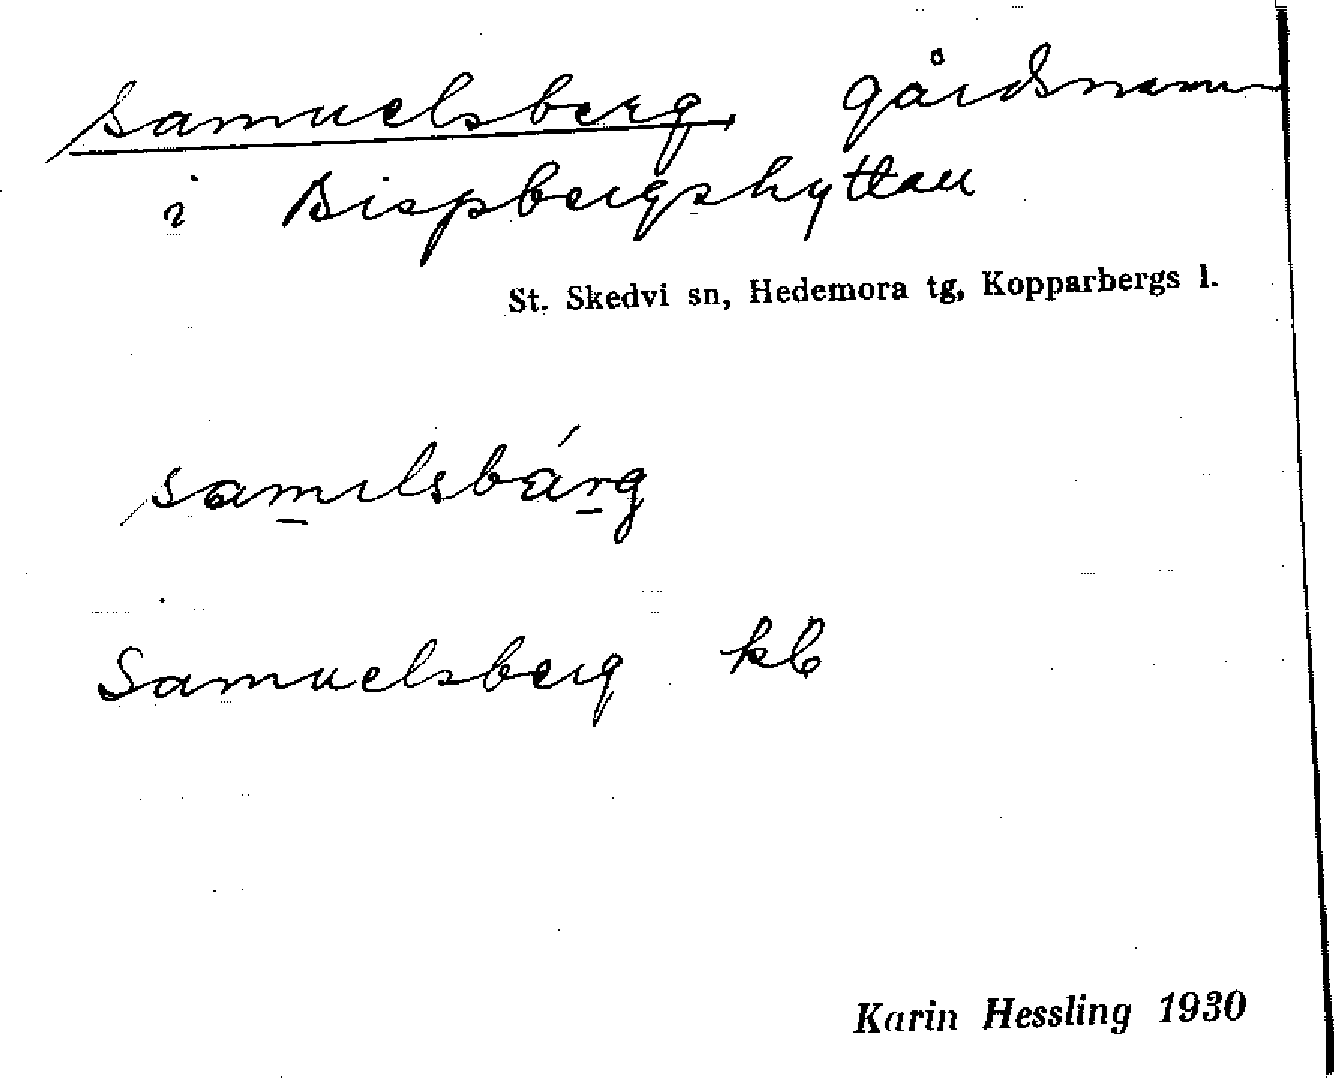 Samuelsberg gårdsnamn
i Bispbergshyttan
St. Skedvi sn, Hedemora tg, Kopparbergs l.
samɩlsbárg
Samuelsberg kb
Karin Hessling 1930